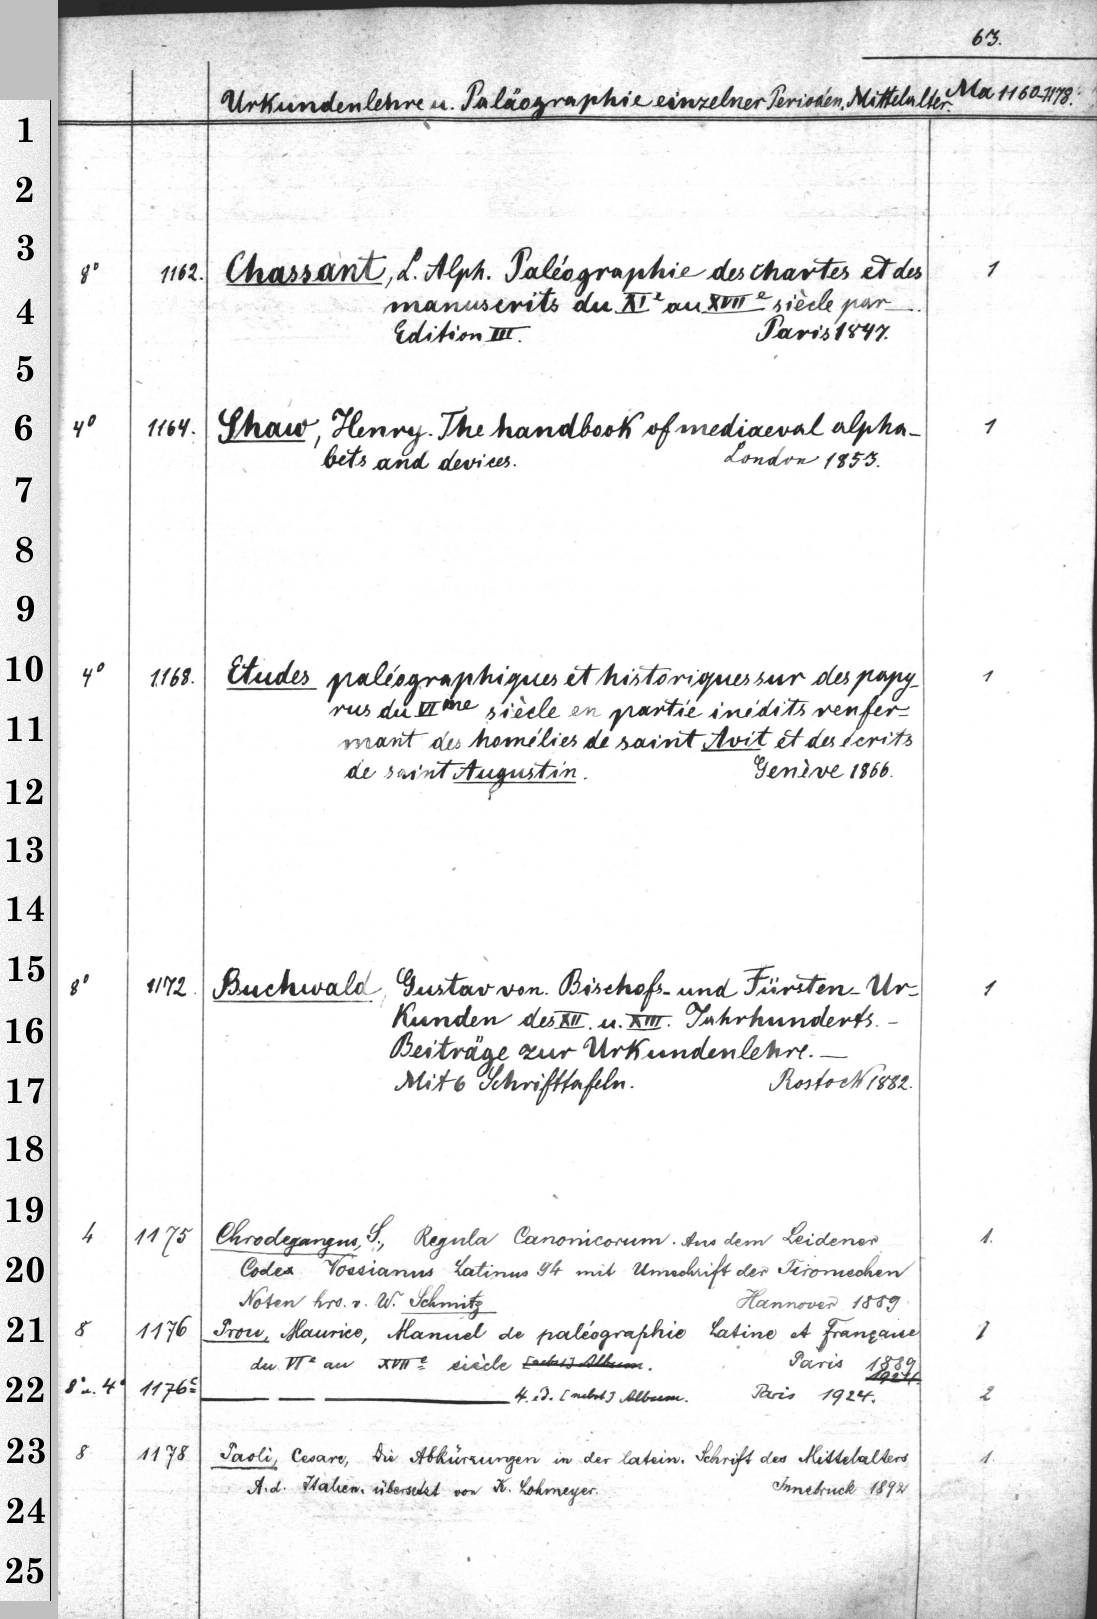 63.
Urkundenlehre u. Paläographie einzelner Perioden. Mittelalter. Ma 1160-1178.
1
2
3
8° 1162. Chassant, L. Alph. Paléographie des chartes et des 1
4 manuscrits du XIe au XVIIe siècle par —.
Edition III. Paris 1847.
5
6 4° 1164. Shaw, Henry. The handbook of mediaeval alpha- 1
bets and devices. London 1853.
7
8
9
10 4° 1168. Etudes paléographiques et historiques sur des papy- 1
rus du VIme siècle en partie inédits renfer-
11 mant des homélies de saint Avit et des écrits
de saint Augustin. Genève 1866.
12
13
14
15 8° 1172. Buchwald, Gustav von. Bischofs- und Fürsten-Ur- 1
16 kunden des XII. u. XIII. Jahrhunderts. -
Beiträge zur Urkundenlehre. —
17 Mit 6 Schrifttafeln. Rostock 1882.
18
19
4 1175 Chrodegangus, S., Regula Canonicorum. Aus dem Leidener 1.
20 Codex Vossianus Latinus 94 mit Umschrift der Tironischen
Noten hrs. v. W. Schmitz Hannover 1889
21 8 1176 Prou, Maurice, Manuel de paléographie Latine et Française 1
du VIe au XVIIe siècle [nebst] Album. Paris 1889
1924.
22 8° u. 4° 1176c — — — 4. éd. [nebst] Album. Paris 1924. 2
23 8 1178 Paoli, Cesare, Die Abkürzungen in der latein. Schrift des Mittelalters 1.
A. d. Italien. übersetzt von K. Lohmeyer. Innsbruck 1892
24
25